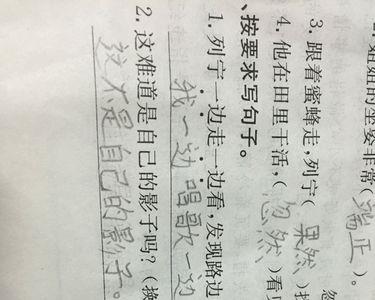 姐姐的坐姿非常(端正)。
3. 跟着蜜蜂走,列宁(果然)
4. 他在田里干活,(忽然)看
、按要求写句子。
1. 列宁一边走一边看,发现路边
我一边唱歌一边
2. 这难道是自己的影子吗?(换
这不是自己的影子。